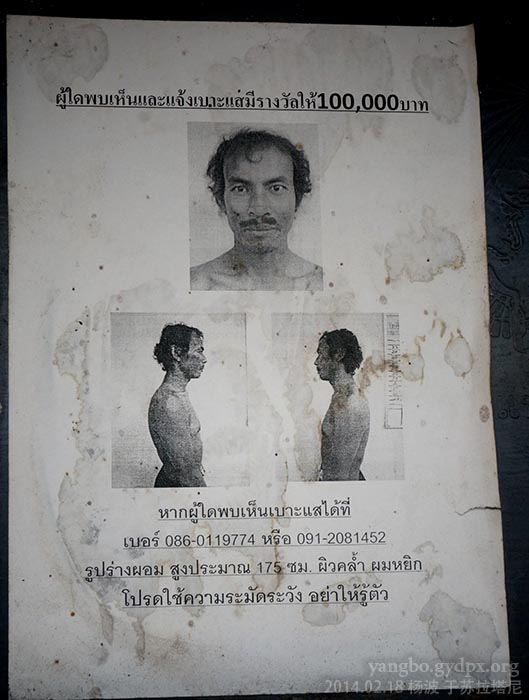 ผู้ใดพบเห็นและแจ้งเบาะแส่มีรางวัลให้100,000บาท
หากผู้ใดพบเห็นเบาะแสได้ที่
เบอร์ 086-0119774 หรือ 091-2081452
รูปร่างผอม สูงประมาณ 175 ซม. ผิวคล้ำ ผมหยิก
โปรดใช้ความระมัดระวัง อย่าให้รู้ตัว
yangbo.gydpx.org
2014.02.18 杨波 于苏拉塔尼